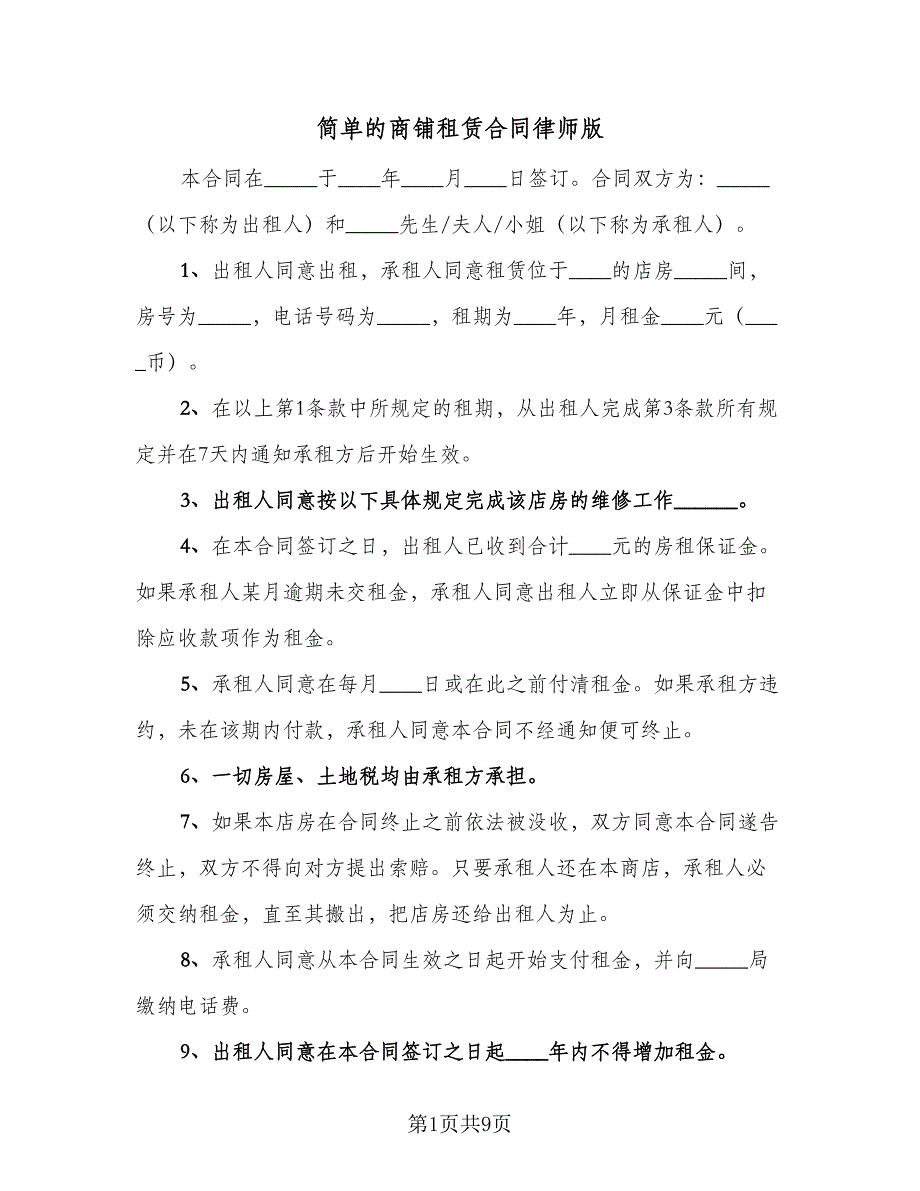 简单的商铺租赁合同律师版
本合同在_____于____年____月____日签订。合同双方为：_____
（以下称为出租人）和_____先生/夫人/小姐（以下称为承租人）。
1、出租人同意出租，承租人同意租赁位于____的店房_____间，
房号为_____，电话号码为_____，租期为____年，月租金____元（___
_币）。
2、在以上第1条款中所规定的租期，从出租人完成第3条款所有规
定并在7天内通知承租方后开始生效。
3、出租人同意按以下具体规定完成该店房的维修工作______。
4、在本合同签订之日，出租人已收到合计____元的房租保证金。
如果承租人某月逾期未交租金，承租人同意出租人立即从保证金中扣
除应收款项作为租金。
5、承租人同意在每月____日或在此之前付清租金。如果承租方违
约，未在该期内付款，承租人同意本合同不经通知便可终止。
6、一切房屋、土地税均由承租方承担。
7、如果本店房在合同终止之前依法被没收，双方同意本合同遂告
终止，双方不得向对方提出索赔。只要承租人还在本商店，承租人必
须交纳租金，直至其搬出，把店房还给出租人为止。
8、承租人同意从本合同生效之日起开始支付租金，并向_____局
缴纳电话费。
9、出租人同意在本合同签订之日起____年内不得增加租金。
第1页共9页